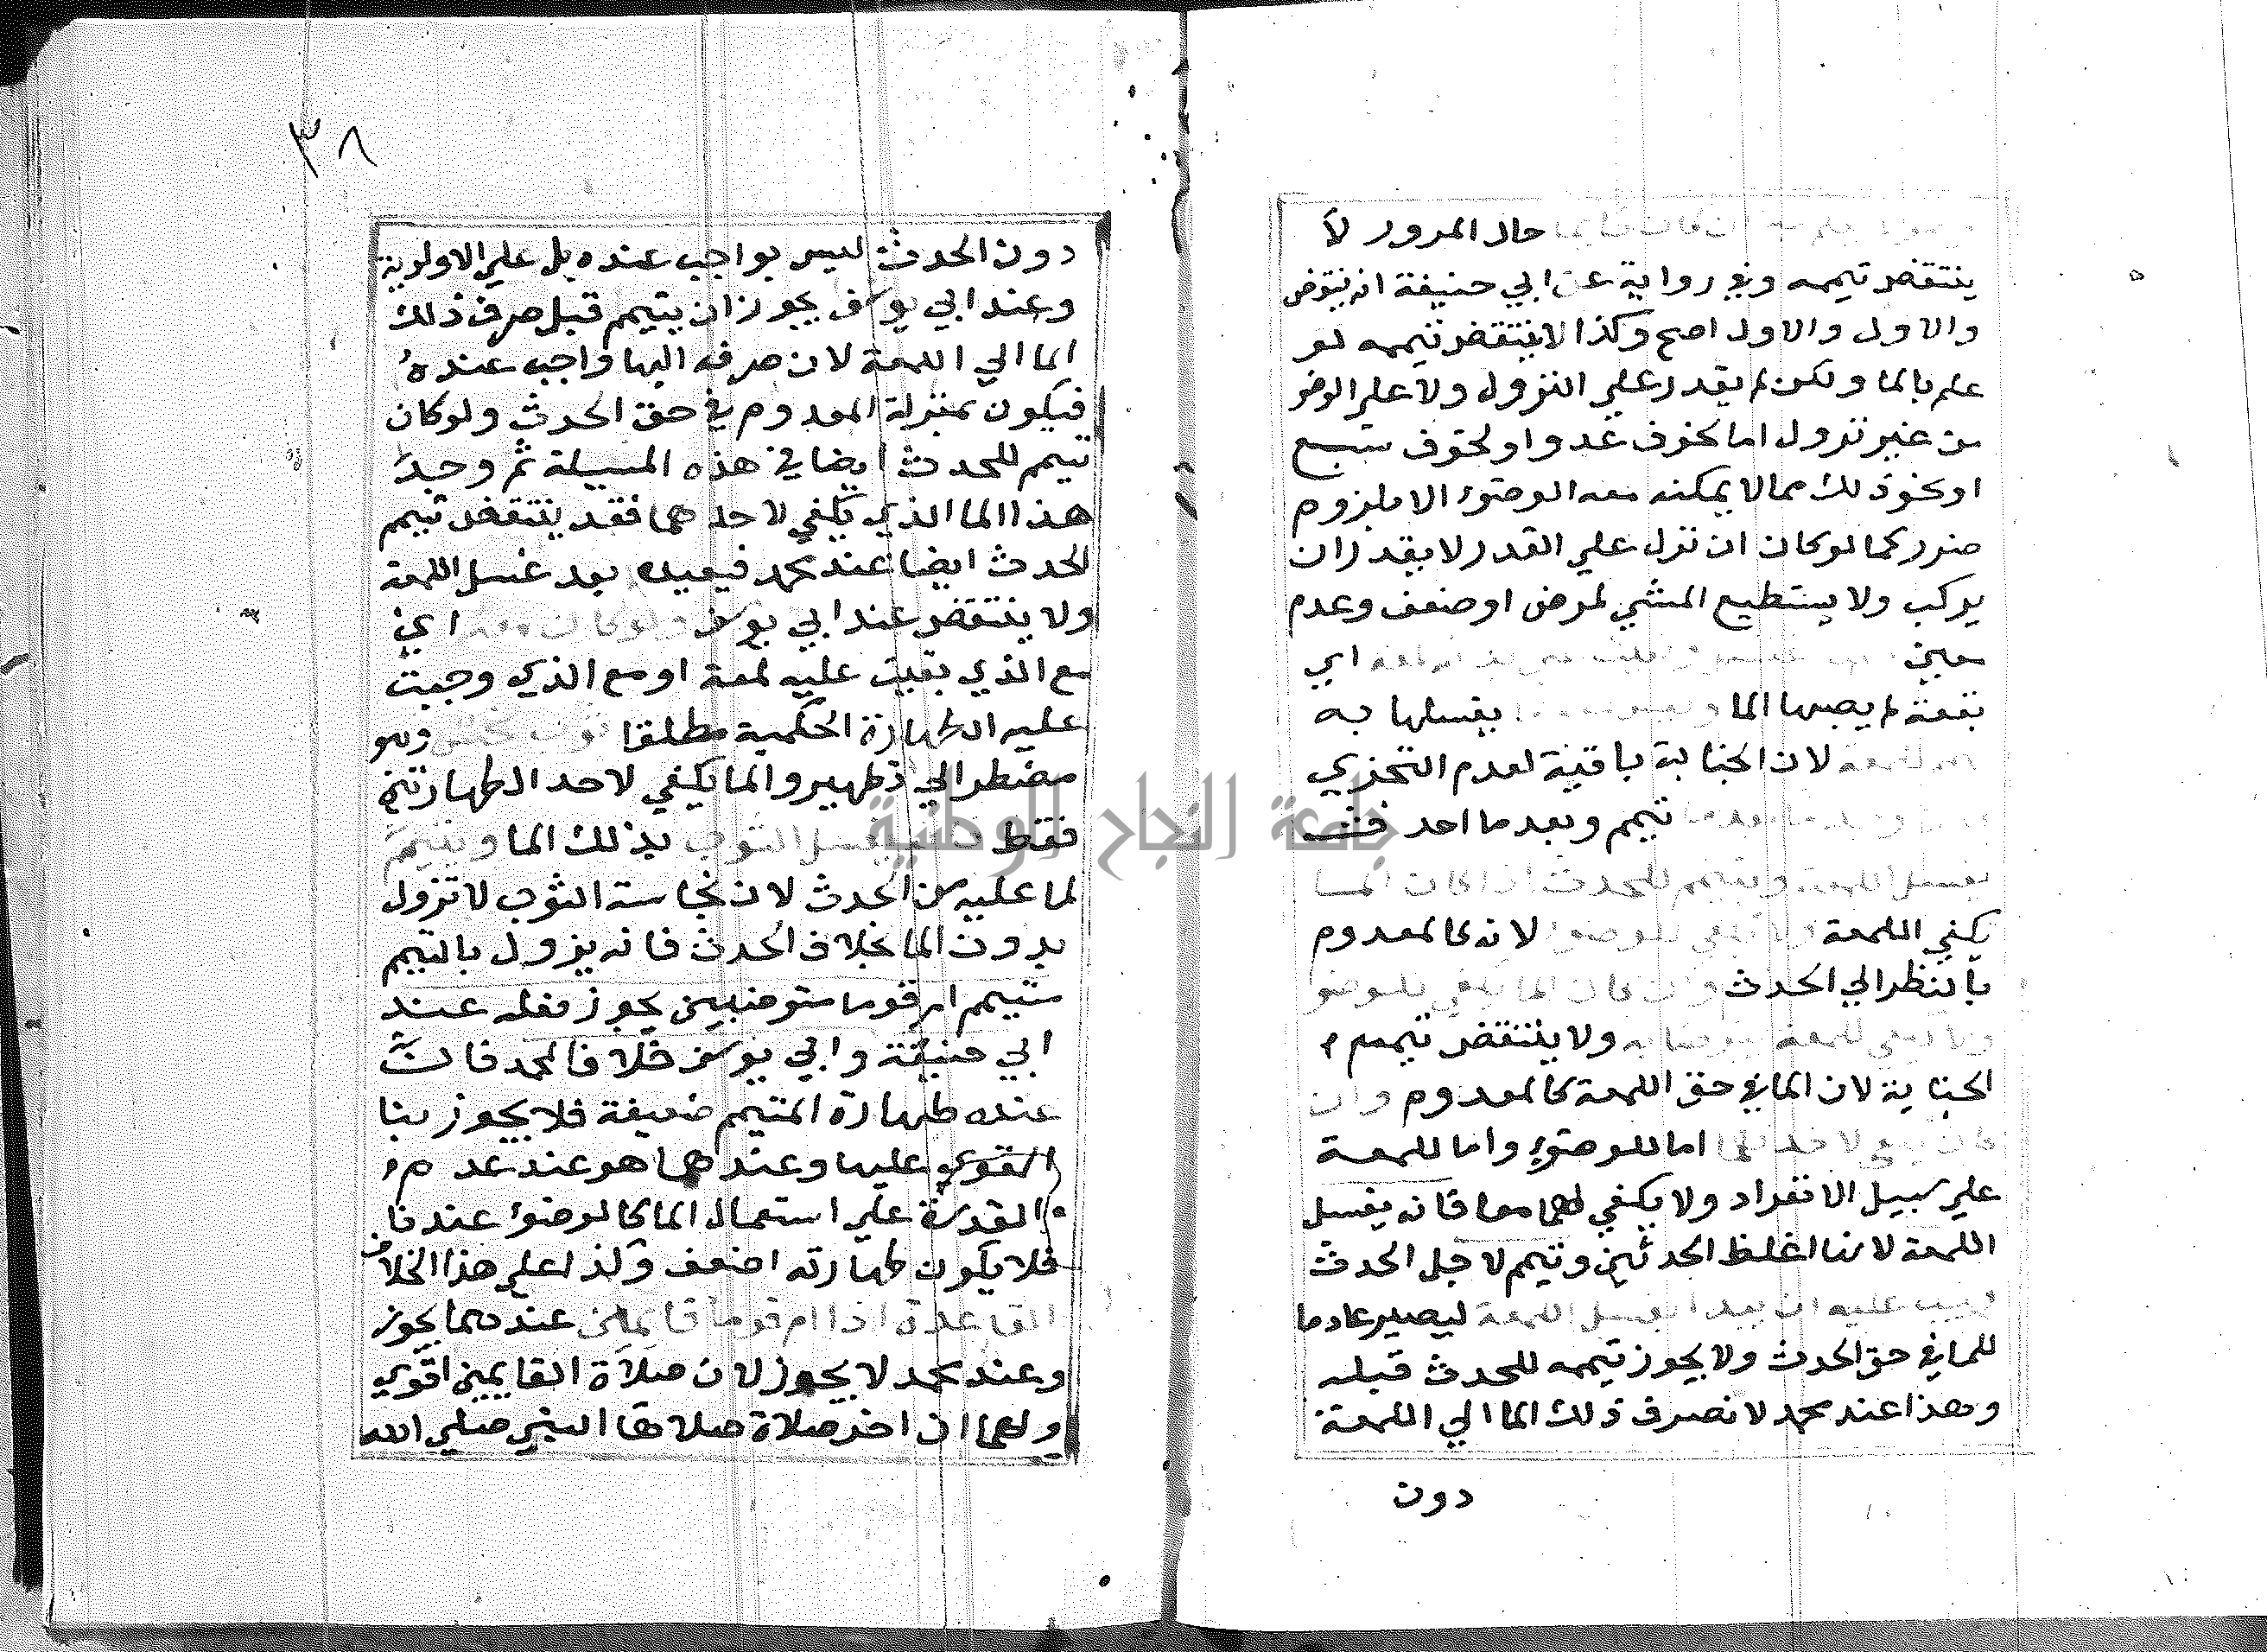 حال المرور لا
ينتقض تيممه وفي رواية عن ابي حنيفة انه ينتقض
والاول والاول اصح وكذا لا ينتقض تيممه لو
علم بالما ولكن لم يقدر علي النزول ولا علي الوضو
من غير نزول اما لخوف عدو او لخوف سبع
او نحو ذلك مما لا يمكنه معه الوضوء الا بلزوم
ضرر كما لو كان ان نزل علي القدر لا يقدر ان
يركب ولا يستطيع المشي لمرض او ضعف وعدم
معين اي
بقعة لم يصبها الما يغسلها به
لان الجنابة باقية لعدم التجزي
تيمم وبعد ما احدث
يغسل اللمعة ويتيمم للحدث ان كان الما
يكفي اللمعة ولا يكفي للوضوء لانه كالمعدوم
بالنظر الي الحدث وان كان الما يكفي للوضو
ولا يكفي للمعة يتوضا به ولا ينتقض تيمم
الجنابة لان الما في حق اللمعة كالمعدوم وان
كان يكفي لاحدهما اما للوضوء واما للمعة
علي سبيل الانفراد ولا يكفي لهما معا فانه يغسل
اللمعة لانها اغلظ الحدثين وتيمم لاجل الحدث
ويجب عليه ان يبدا بغسل اللمعة ليصير عادما
للما في حق الحدث ولا يجوز تيممه للحدث قبله
وهذا عند محمد لان صرف ذلك الما الي اللمعة
دون
٣٨
دون الحدث ليس بواجب عنده بل علي الاولوية
وعند ابي يوسف يجوز ان يتيمم قبل صرف ذلك
الما الي اللمعة لان صرفه اليها واجب عنده
فيكون بمنزلة المعدوم في حق الحدث ولو كان
تيمم للحدث ايضا في هذه المسيلة ثم وجد
هذا الما الذي يكفي لاحدهما فقد ينتقض تيمم
الحدث ايضا عند محمد فيعيده بعد غسل اللمعة
ولا ينتقض عند ابي يوسف ولو كان معه اي
مع الذي بقيت عليه لمعة او مع الذي وجبت
عليه الطهارة الحكمية مطلقا ثوب نجس وهو
مضطر الي تطهير والما يكفي لاحد الطهارتين
فقط يغسل الثوب بذلك الما ويتيمم
لما عليه من الحدث لان نجاسة الثوب لا تزول
بدون الما بخلاف الحدث فانه يزول بالتيمم
متيمم ام قوما متوضيين يجوز فعله عند
ابي حنيفة وابي يوسف خلافا لمحمد فان
عنده طهارة المتيمم ضعيفة فلا يجوز بنا
القوي عليها وعندهما هو عند عدم
القدرة علي استعمال الما كالوضوء عندنا
فلا يكون طهارته اضعف وكذا علي هذا الخلاف
القاعد اذا ام قوما قايمين عندهما يجوز
وعند محمد لا يجوز لان صلاة القايمين اقوي
ولهما ان اخر صلاة صلاها النبي صلي الله
جامعة النجاح الوطنية